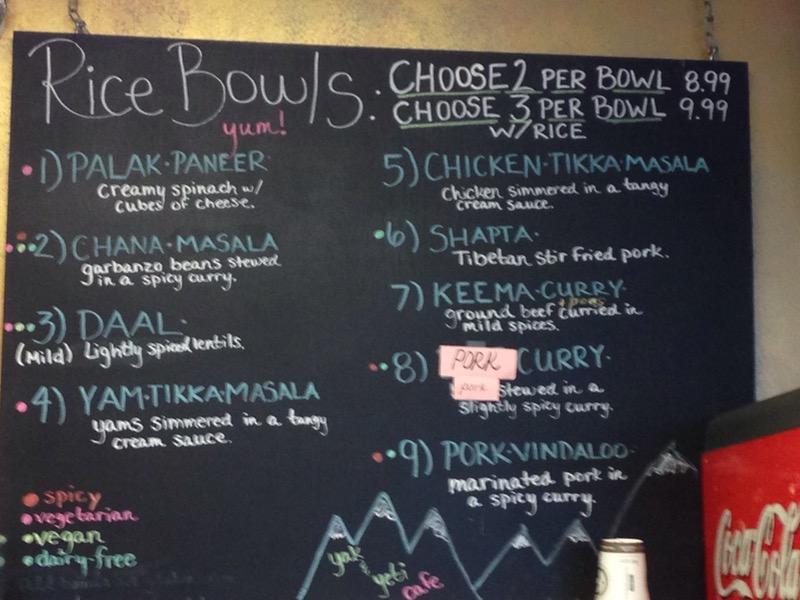 Rice Bowls: CHOOSE 2 PER BOWL 8.99
CHOOSE 3 PER BOWL 9.99
W/ RICE
yum!
1) PALAK·PANEER
Creamy spinach w/
cubes of cheese.
2) CHANA·MASALA
garbanzo beans stewed
in a spicy curry.
3) DAAL·
(Mild) Lightly spiced lentils.
4) YAM·TIKKA·MASALA
yams simmered in a tangy
cream sauce.
5) CHICKEN·TIKKA·MASALA
Chicken simmered in a tangy
cream sauce.
6) SHAPTA·
Tibetan stir fried pork.
7) KEEMA·CURRY·
+ peas
ground beef curried in
mild spices.
8) PORK CURRY·
pork stewed in a
slightly spicy curry.
9) PORK·VINDALOO·
marinated pork in
a spicy curry.
spicy
vegetarian
vegan
dairy-free
yak &
yeti
cafe
Coca-Cola